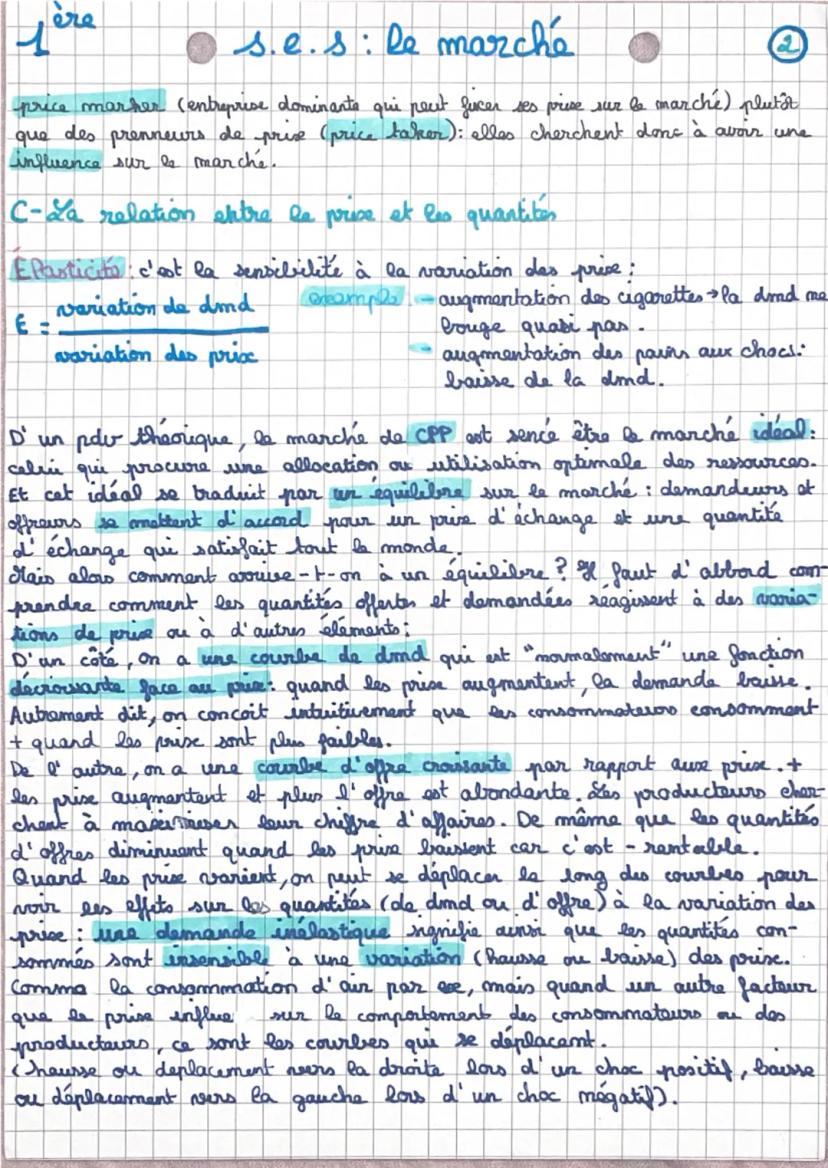 1ère s.e.s : le marché 2
price marker (entreprise dominante qui peut fixer ses prix sur le marché) plutôt
que des prenneurs de prix (price taker) : elles cherchent donc à avoir une
influence sur le marché.
C-La relation entre le prix et les quantités
Élasticité : c'est la sensibilité à la variation des prix :
E = variation de dmd / variation des prix
exemple : - augmentation des cigarettes → la dmd ne
bouge quasi pas.
- augmentation des pains aux chocs :
baisse de la dmd.
D'un pdv théorique, le marché de CPP est sencé être le marché idéal :
celui qui procure une allocation ou utilisation optimale des ressources.
Et cet idéal se traduit par un équilibre sur le marché : demandeurs et
offreurs se mettent d'accord pour un prix d'échange et une quantité
d'échange qui satisfait tout le monde.
Mais alors comment arrive-t-on à un équilibre ? Il faut d'abbord com-
prendre comment les quantités offertes et demandées réagissent à des varia-
tions de prix ou à d'autres éléments :
D'un côté, on a une courbe de dmd qui est "normalement" une fonction
décroissante face au prix : quand les prix augmentent, la demande baisse.
Autrement dit, on conçoit intuitivement que les consommateurs consomment
+ quand les prix sont plus faibles.
De l'autre, on a une courbe d'offre croissante par rapport aux prix. +
les prix augmentent et plus l'offre est abondante. Les producteurs cher-
chent à maximiser leur chiffre d'affaires. De même que les quantités
d'offres diminuent quand les prix baissent car c'est - rentable.
Quand les prix varient, on peut se déplacer le long des courbes pour
voir les effets sur les quantités (de dmd ou d'offre) à la variation des
prix : une demande inélastique signifie ainsi que les quantités con-
sommés sont insensible à une variation (hausse ou baisse) des prix.
Comme la consommation d'air par ex, mais quand un autre facteur
que le prix influe sur le comportement des consommateurs ou des
producteurs, ce sont les courbes qui se déplacent.
(hausse ou deplacement vers la droite lors d'un choc positif, baisse
ou déplacement vers la gauche lors d'un choc négatif).